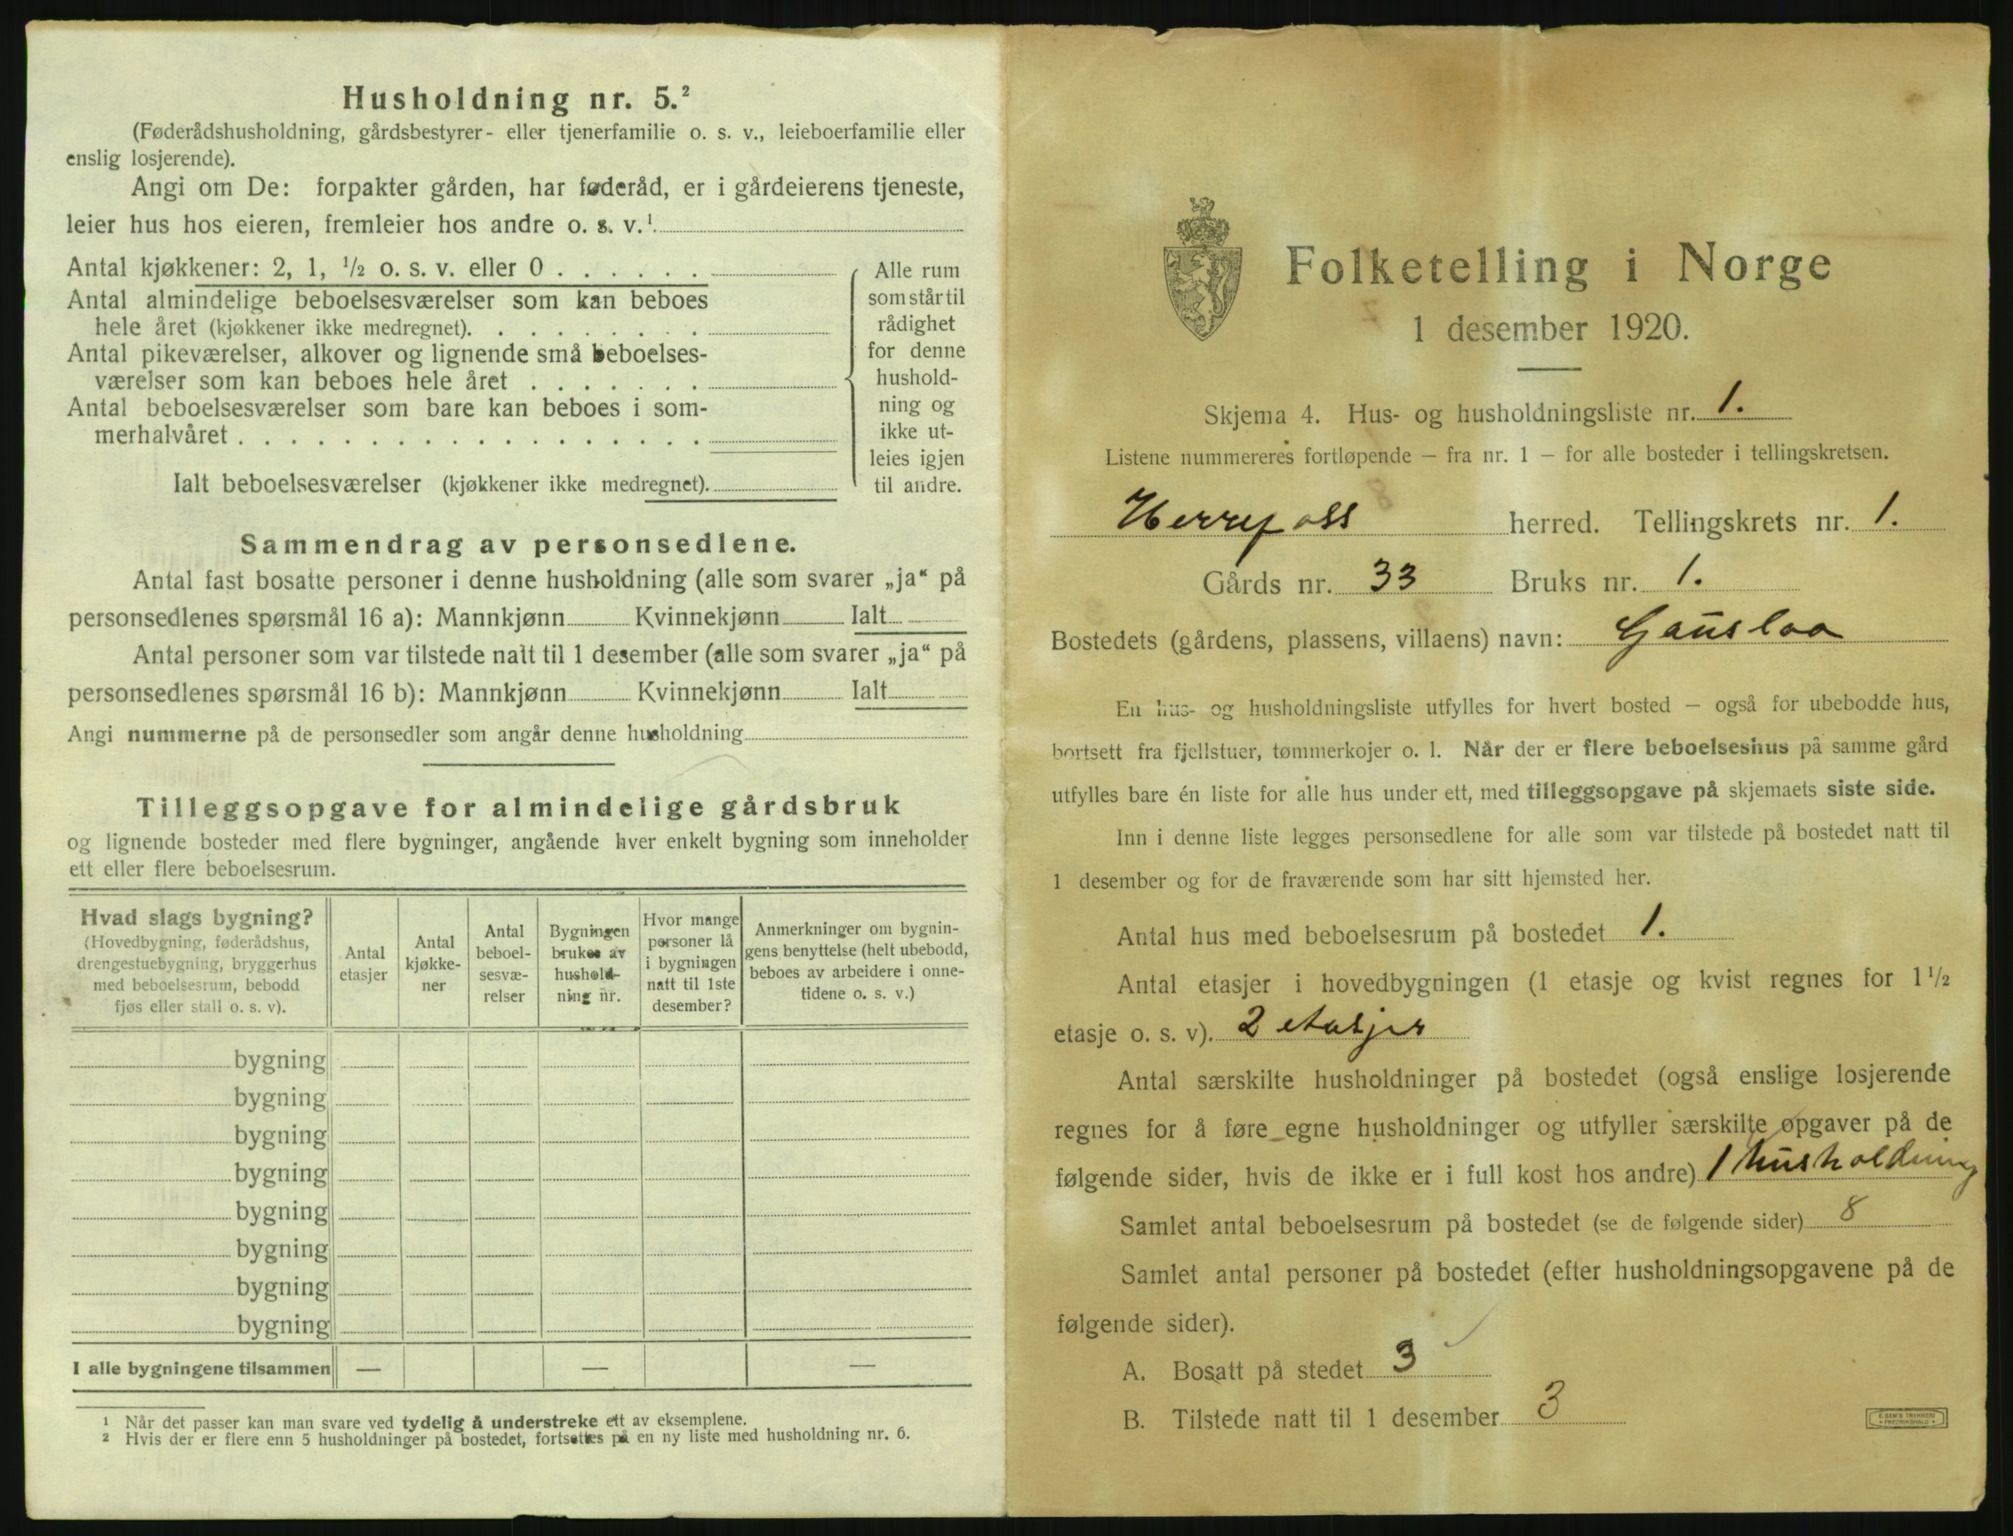 Husholdning nr. 5.²
(Føderådshusholdning, gårdsbestyrer- eller tjenerfamilie o. s. v., leieboerfamilie eller
enslig losjerende).
Angi om De: forpakter gården, har føderåd, er i gårdeierens tjeneste,
leier hus hos eieren, fremleier hos andre o. s. v.¹
Antal kjøkkener: 2, 1, ½ o. s. v. eller 0 . . . . . .
Antal almindelige beboelsesværelser som kan beboes
hele året (kjøkkener ikke medregnet). . . . . . . . .
Antal pikeværelser, alkover og lignende små beboelses-
værelser som kan beboes hele året . . . . . . .
Antal beboelsesværelser som bare kan beboes i som-
merhalvåret . . . . . . . . . . . . . . . . . .
Ialt beboelsesværelser (kjøkkener ikke medregnet).
Alle rum
som står til
rådighet
for denne
hushold-
ning og
ikke ut-
leies igjen
til andre.
Sammendrag av personsedlene.
Antal fast bosatte personer i denne husholdning (alle som svarer „ja“ på
personsedlenes spørsmål 16 a): Mannkjønn Kvinnekjønn Ialt
Antal personer som var tilstede natt til 1 desember (alle som svarer „ja“ på
personsedlenes spørsmål 16 b): Mannkjønn Kvinnekjønn Ialt
Angi nummerne på de personsedler som angår denne husholdning
Tilleggsopgave for almindelige gårdsbruk
og lignende bosteder med flere bygninger, angående hver enkelt bygning som inneholder
ett eller flere beboelsesrum.
Hvad slags bygning?
(Hovedbygning, føderådshus,
drengestuebygning, bryggerhus
med beboelsesrum, bebodd
fjøs eller stall o. s. v).
Antal
etasjer
Antal
kjøkke-
ner
Antal
beboel-
sesvæ-
relser
Bygningen
brukes av
hushold-
ning nr.
Hvor mange
personer lå
i bygningen
natt til 1ste
desember?
Anmerkninger om bygnin-
gens benyttelse (helt ubebodd,
beboes av arbeidere i onne-
tidene o. s. v.)
bygning
bygning
bygning
bygning
bygning
bygning
bygning
bygning
I alle bygningene tilsammen — — —
¹ Når det passer kan man svare ved tydelig å understreke ett av eksemplene.
² Hvis der er flere enn 5 husholdninger på bostedet, fortsettes på en ny liste med husholdning nr. 6.
Folketelling i Norge
1 desember 1920.
Skjema 4. Hus- og husholdningsliste nr. 1.
Listene nummereres fortløpende — fra nr. 1 — for alle bosteder i tellingskretsen.
Herrefoss herred. Tellingskrets nr. 1.
Gårds nr. 33 Bruks nr. 1.
Bostedets (gårdens, plassens, villaens) navn: Gauslaa
En hus- og husholdningsliste utfylles for hvert bosted — også for ubebodde hus,
bortsett fra fjellstuer, tømmerkojer o. l. Når der er flere beboelseshus på samme gård
utfylles bare én liste for alle hus under ett, med tilleggsopgave på skjemaets siste side.
Inn i denne liste legges personsedlene for alle som var tilstede på bostedet natt til
1 desember og for de fraværende som har sitt hjemsted her.
Antal hus med beboelsesrum på bostedet 1.
Antal etasjer i hovedbygningen (1 etasje og kvist regnes for 1½
etasje o. s. v). 2 etasjer
Antal særskilte husholdninger på bostedet (også enslige losjerende
regnes for å føre egne husholdninger og utfyller særskilte opgaver på de
følgende sider, hvis de ikke er i full kost hos andre) 1 husholdning
Samlet antal beboelsesrum på bostedet (se de følgende sider) 8
Samlet antal personer på bostedet (efter husholdningsopgavene på de
følgende sider).
A. Bosatt på stedet 3
B. Tilstede natt til 1 desember 3
E. SEM'S TRYKKERI
FREDRIKSHALD